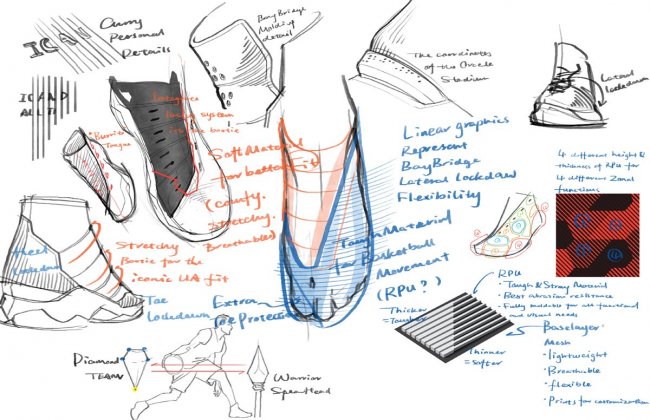 ICAN
Curry
Personal
Details
BayBridge
Molding
detail
The coordinates
of the Oracle
Stadium
Lateral
Lockdown
I CAN DO
ALL TH
Burrito
Tongue
Integrate
lacing system
into the bootie
Soft Material
for better fit
(comfy.
Stretchy.
Breathable)
Linear graphics
Represent
BayBridge
Lateral Lockdown
Flexibility
4 different height &
thickness of RPU for
4 different Zonal
functions
Heel
Lockdown
Stretchy
Bootie for the
iconic UA fit
Toe
Lockdown
Extra
Toe Protection
Tough Material
for Basketball
Movement
(RPU?)
Thicker
=Tougher
Thinner
=Softer
RPU
• Tough & Strong Material
• Best abrasion resistance
• Fully moldable for all functional
and visual needs
Baselayer
Mesh
• lightweight
• Breathable
• flexible
• Prints for customization
Diamond
TEAM
Warrior
Spearhead